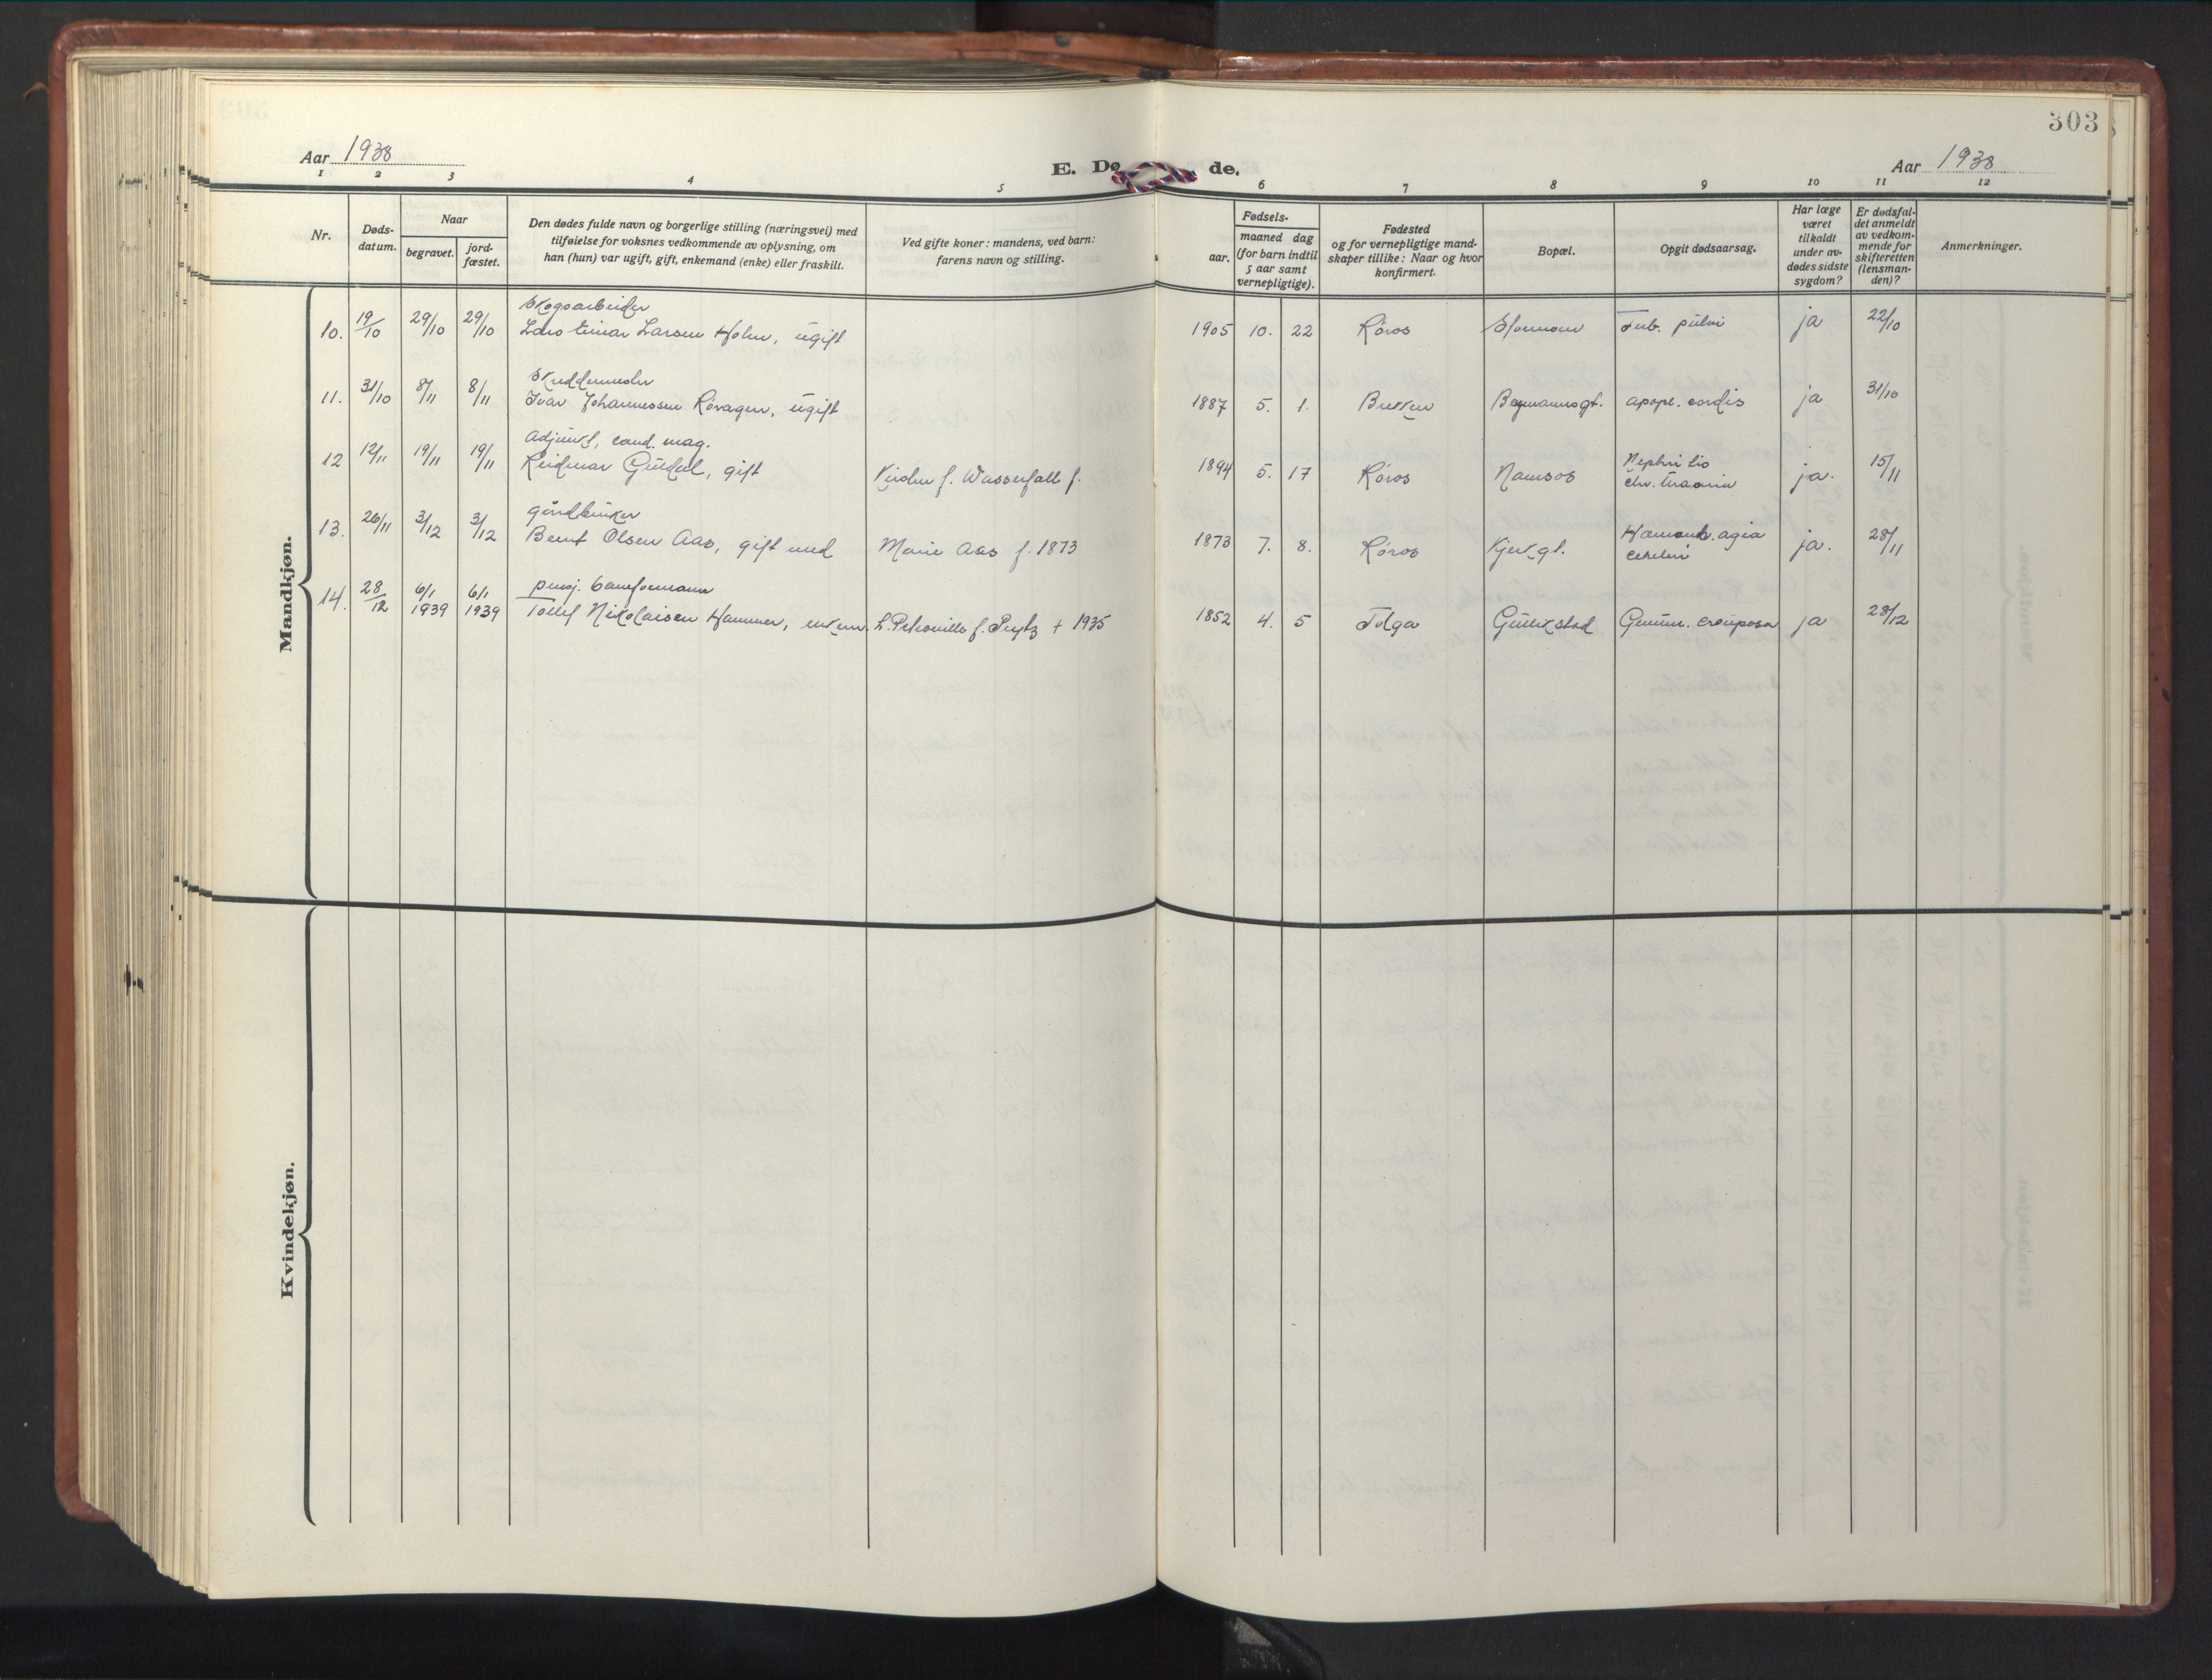 303
Aar 1938
E. Dø de.
Aar 1938
1 2 3 4 5 6 7 8 9 10 11 12
Nr.
Døds-
datum.
Naar
begravet.
jord-
fæstet.
Den dødes fulde navn og borgerlige stilling (næringsvei) med
tilføielse for voksnes vedkommende av oplysning, om
han (hun) var ugift, gift, enkemand (enke) eller fraskilt.
Ved gifte koner: mandens, ved barn:
farens navn og stilling.
Fødsels-
aar.
maaned dag
(for barn indtil
5 aar samt
vernepligtige).
Fødested
og for vernepligtige mand-
skaper tillike: Naar og hvor
konfirmert.
Bopæl.
Opgit dødsaarsag.
Har læge
været
tilkaldt
under av-
dødes sidste
sygdom?
Er dødsfal-
det anmeldt
av vedkom-
mende for
skifteretten
(lensman-
den)?
Anmerkninger.
Mandkjøn.
Skogsarbeider
10. 19/10 29/10 29/10 Lars Einar Larsen Holm, ugift 1905 10. 22 Røros Tub. pulm ja 22/10
Skreddermester
11. 31/10 8/11 8/11 Ivar Johannessen Rövagen, ugift 1887 5. 1. Brekken Bergmannsgt. apopl. cordis ja 31/10
Adjunkt, cand. mag.
12 12/11 19/11 19/11 Reidmar Guldal, gift Kirsten f. Wasserfall f. 1894 5. 17 Røros Namsos Nephritis
chr. Uraemia ja. 15/11
gårdbruker
13. 26/11 3/12 3/12 Bernt Olsen Aas, gift med Marie Aas f. 1873 1873 7. 8. Røros Kjerkgt. Hæmorh.agia
cerebri ja. 28/11
pensj. baneformann
14. 28/12 6/1 1939 6/1 1939 Tollef Nikolaisen Hammer, enkem. L. Petronille f. Pryts + 1935 1852 4. 5 Tolga Gullikstad Pneum. crouposa ja 28/12
Kvindekjøn.